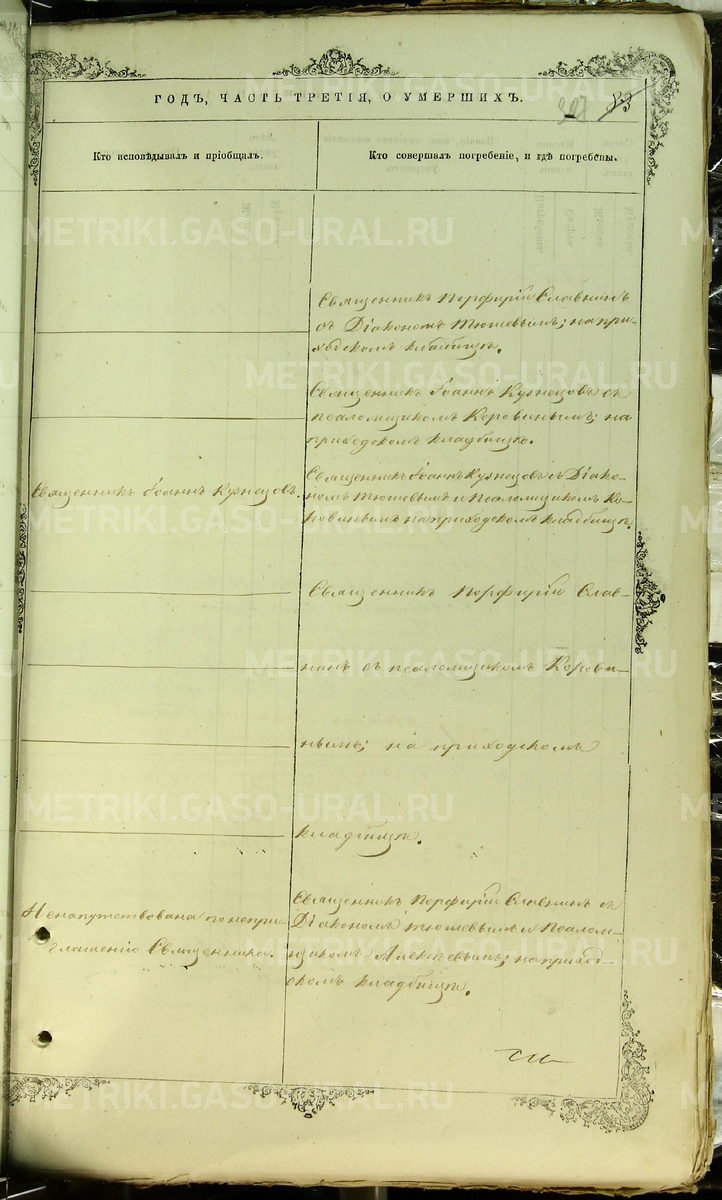 ГОДЪ, ЧАСТЬ ТРЕТІЯ, О УМЕРШИХЪ.
227 83
Кто исповѣдывалъ и пріобщалъ.
Кто совершалъ погребеніе, и гдѣ погребены.
Священникъ Порфирій Славнинъ
съ Діакономъ Тюшевымъ; на при-
ходскомъ кладбищѣ.
Священникъ Іоаннъ Кузнецовъ съ
псаломщикомъ Коровинымъ; на
приходскомъ кладбищѣ.
Священникъ Іоаннъ Кузнецовъ.
Священникъ Іоаннъ Кузнецовъ съ Діако-
номъ Тюшевымъ и Псаломщикомъ Ко-
ровинымъ на приходскомъ кладбищѣ.
Священникъ Порфирій Слав-
нинъ съ псаломщикомъ Корови-
нымъ; на приходскомъ
кладбищѣ.
Ненапутствована по непри-
глашенію Священника.
Священникъ Порфирій Славнинъ съ
Діакономъ Тюшевымъ и Псалом-
щикомъ Алексѣевымъ; на приход-
скомъ кладбищѣ.
METRIKI.GASO-URAL.RU
METRIKI.GASO-URAL.RU
METRIKI.GASO-URAL.RU
METRIKI.GASO-URAL.RU
METRIKI.GASO-URAL.RU
METRIKI.GASO-URAL.RU
METRIKI.GASO-URAL.RU
METRIKI.GASO-URAL.RU